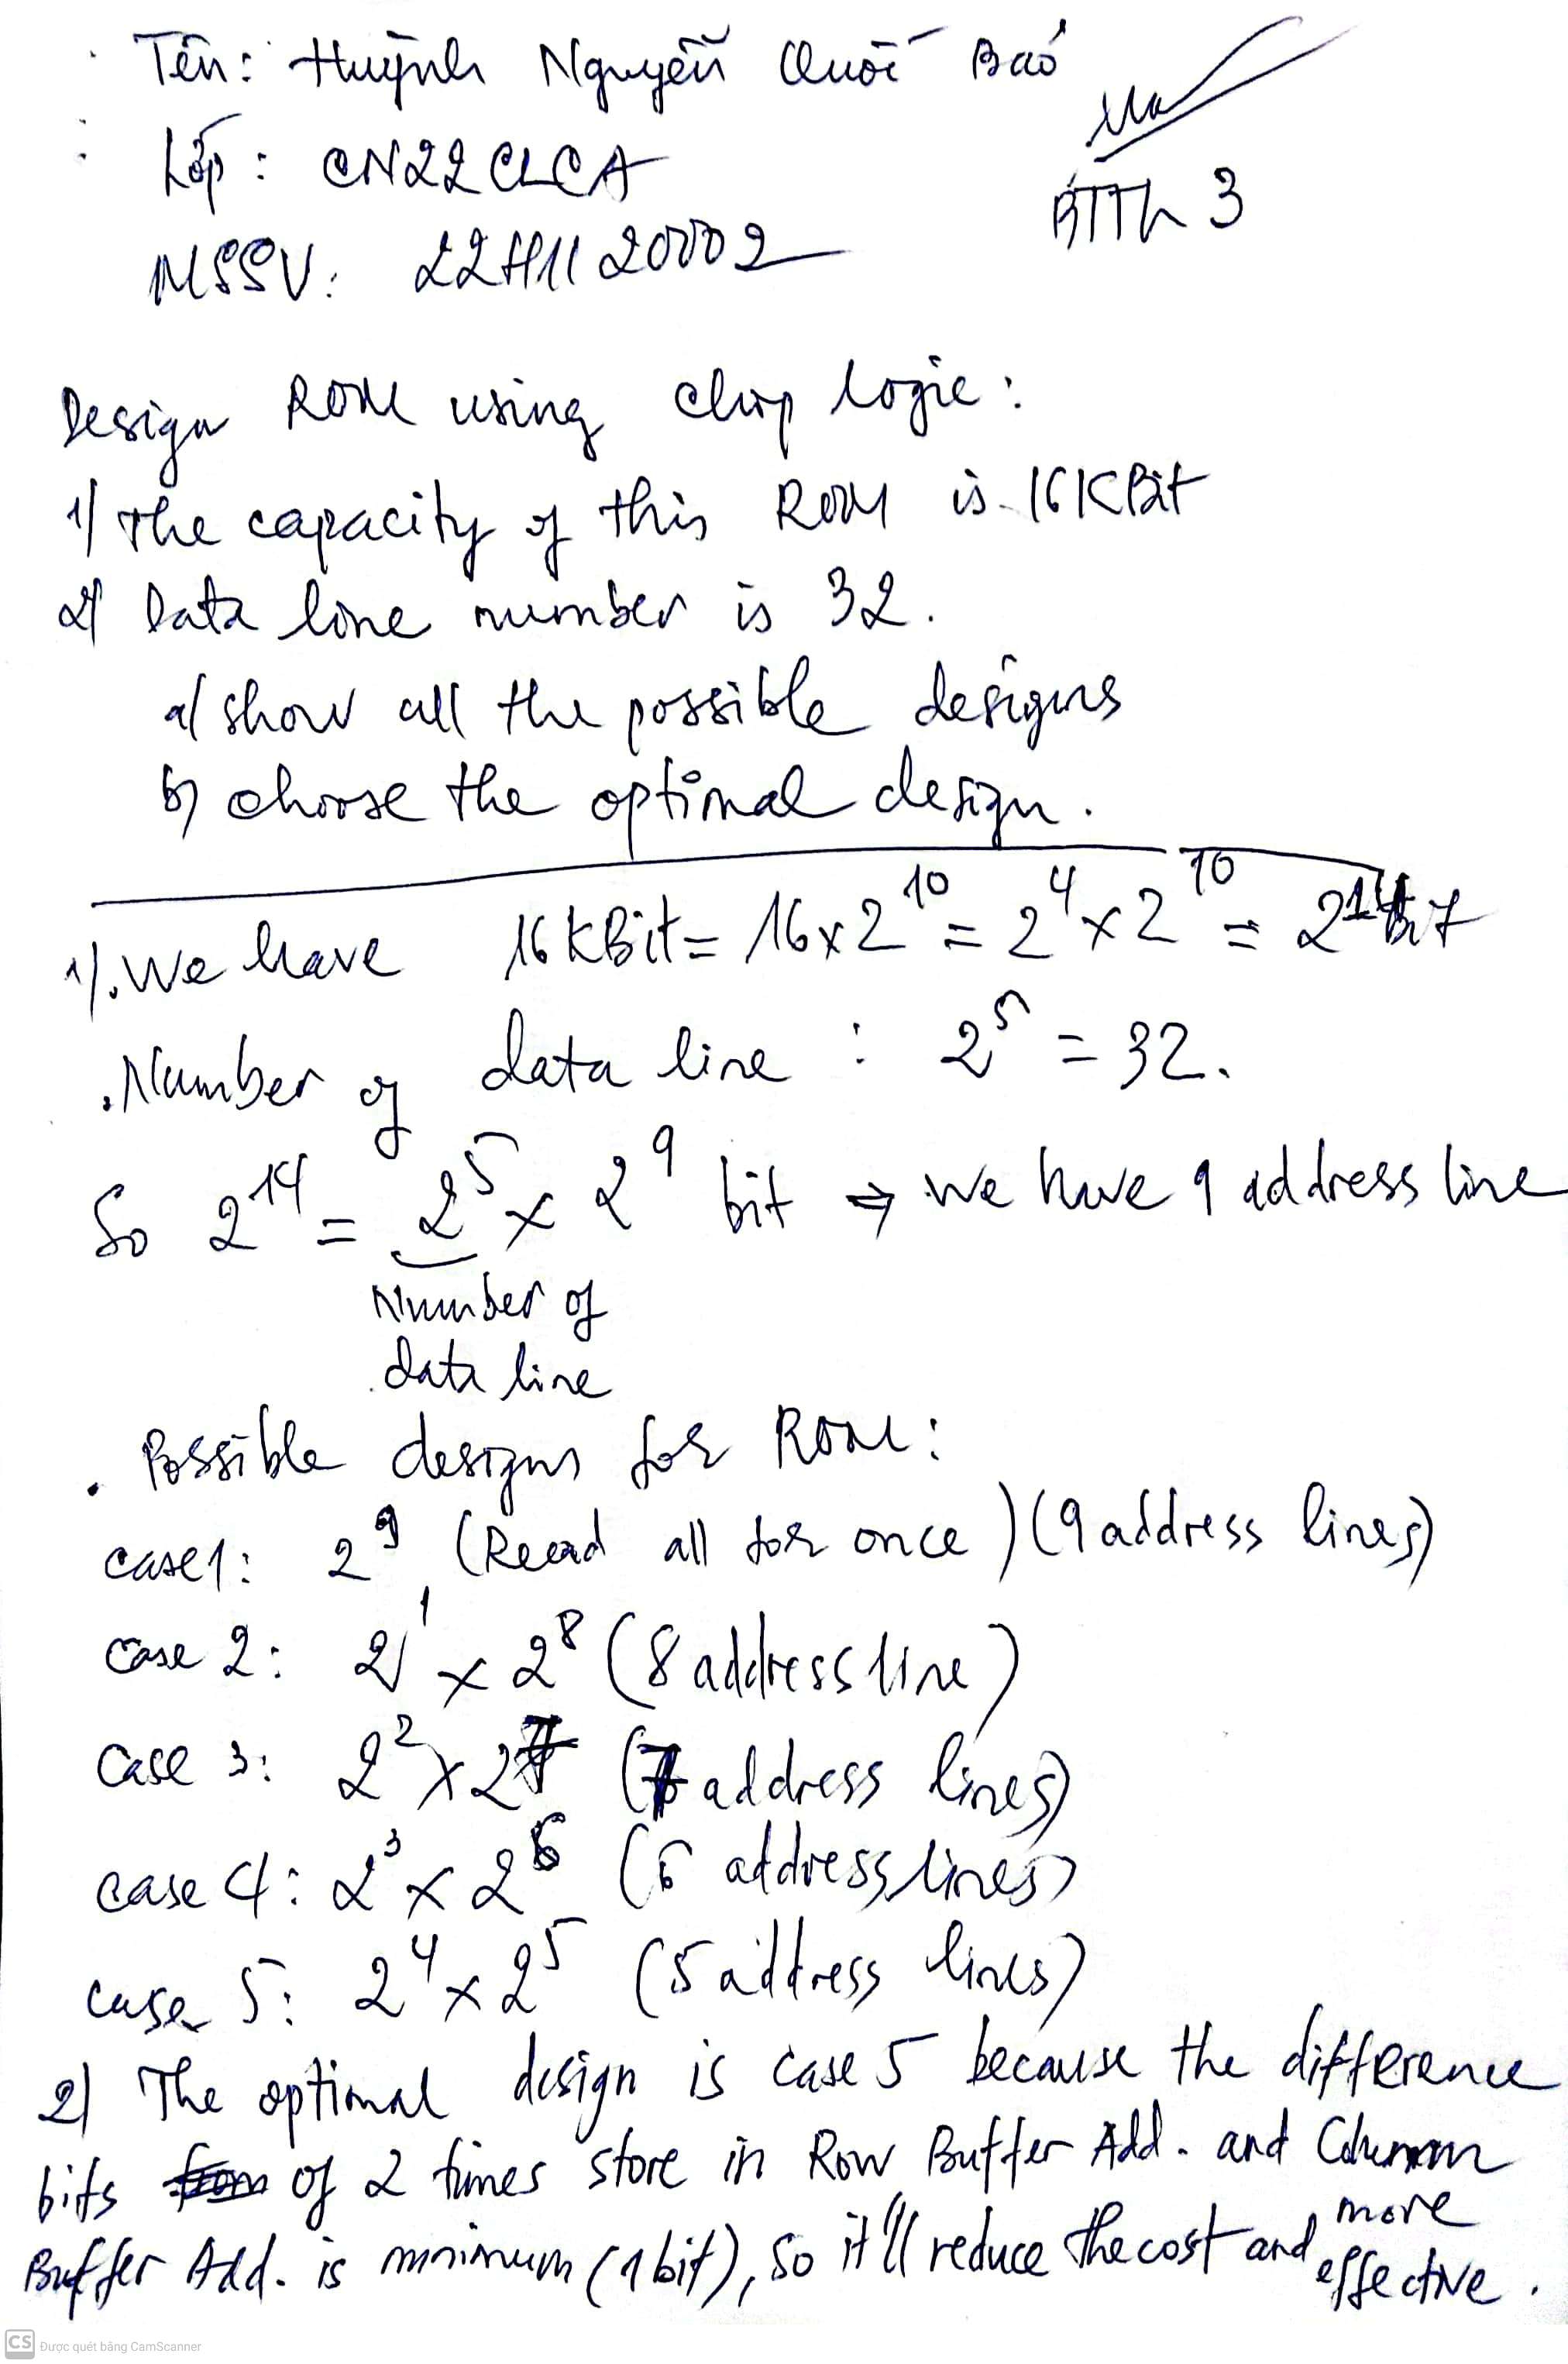 Tên: Huỳnh Nguyễn Quốc Bảo
Lớp: CN22CLCA
MSSV: 22H1120002
BTTH 3
Design ROM using chip logic:
1/ The capacity of this ROM is 16KBit
2/ Data line number is 32.
a/ show all the possible designs
b) choose the optimal design.
1/. We have 16KBit = 16x2^10 = 2^4 x 2^10 = 2^14 bit
. Number of data line : 2^5 = 32.
So 2^14 = 2^5 x 2^9 bit ⇒ we have 9 address line
Number of
data line
. Possible designs for ROM:
case 1: 2^9 (Read all for once) (9 address lines)
case 2: 2^1 x 2^8 (8 address line)
case 3: 2^2 x 2^7 (7 address lines)
case 4: 2^3 x 2^6 (6 address lines)
case 5: 2^4 x 2^5 (5 address lines)
2) The optimal design is case 5 because the difference
bits of 2 times store in Row Buffer Add. and Column
Buffer Add. is minimum (1 bit), so it'll reduce the cost and more
effective.
CS Được quét bằng CamScanner